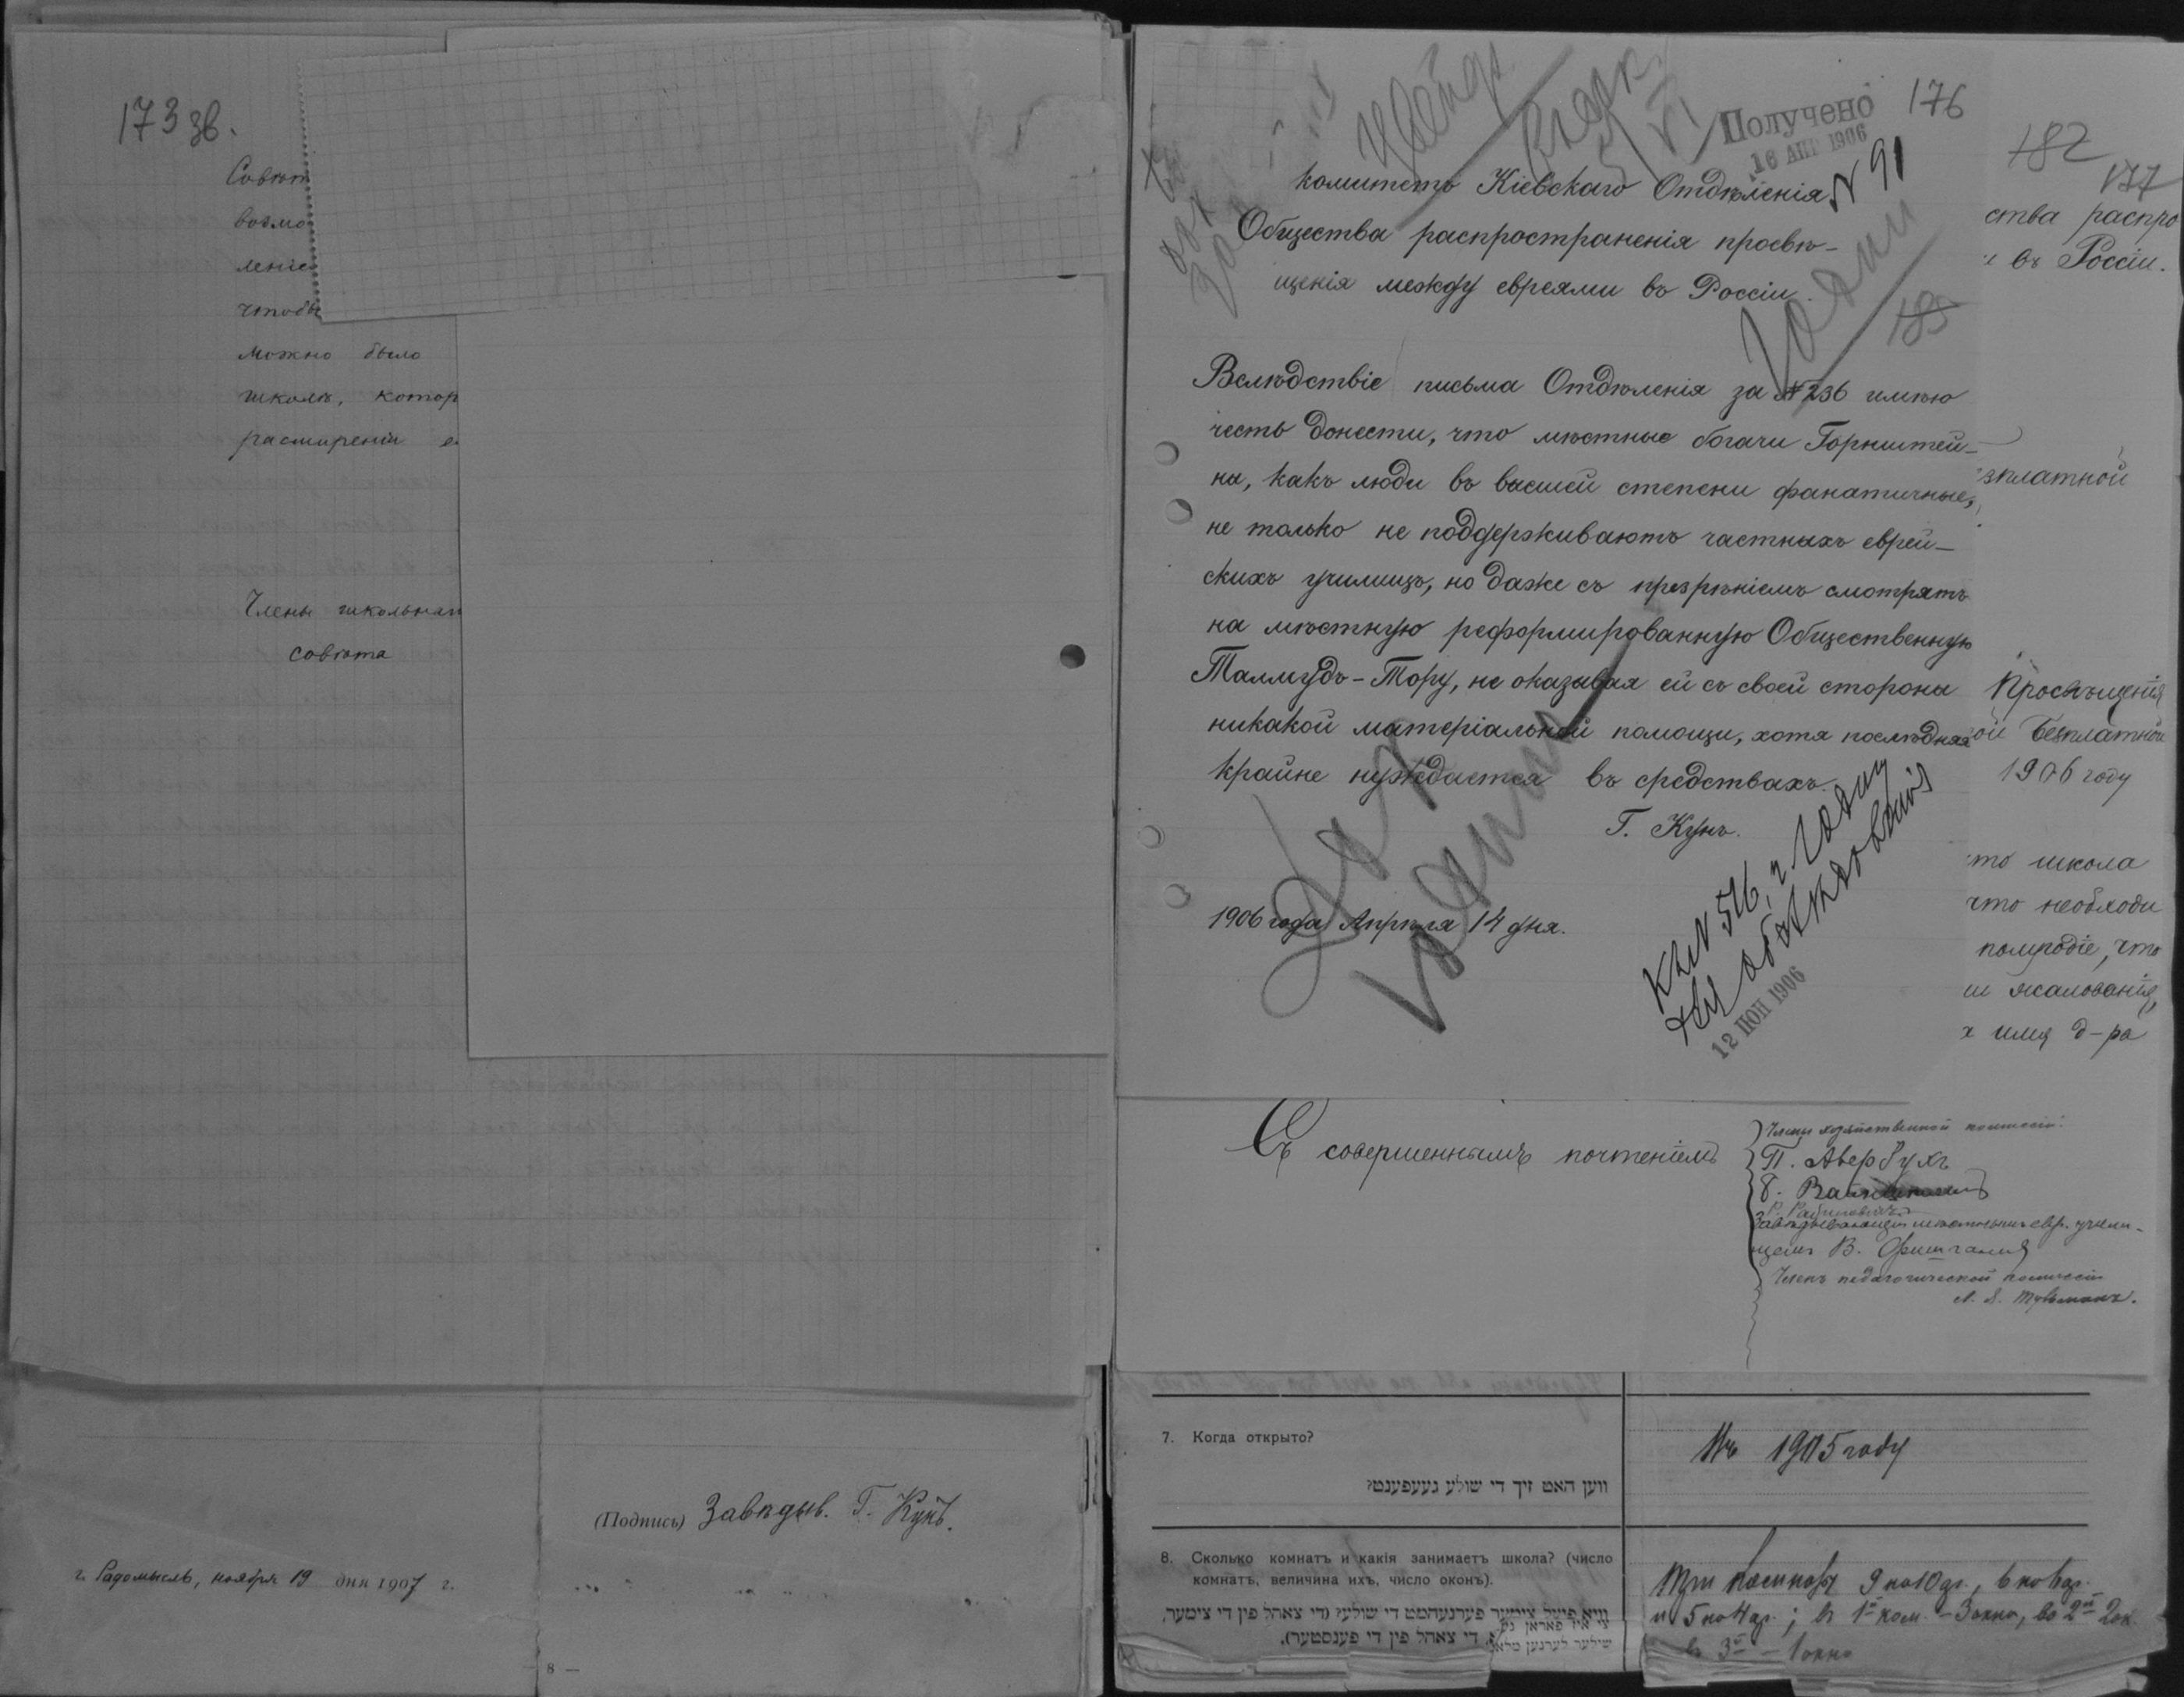 173 зв.
Совѣт
возмо
леніе
чтобы
можно было
школѣ, котор
расширеніи е
Члены школьнаг
совѣта
(Подпись) Завѣдыв. Г. Кунъ.
г. Радомысль, ноября 19 дня 1907 г.
8 —
Получено
16 АПР 1906
176
N 91
комитетъ Кіевскаго Отдѣленія
Общества распространенія просвѣ-
щенія между евреями въ Россіи.
185
Вслѣдствіе письма Отдѣленія за №236 имѣю
честь донести, что мѣстные богачи Горнштей-
ны, какъ люди въ высшей степени фанатичные,
не только не поддерживаютъ частныхъ еврей-
скихъ училищъ, но даже съ презрѣніемъ смотрятъ
на мѣстную реформированную Общественную
Талмудъ-Тору, не оказывая ей съ своей стороны
никакой матеріальной помощи, хотя послѣдняя
крайне нуждается въ средствахъ.
Г. Кунъ.
1906 года Апрѣля 14 дня.
12 ІЮН 1906
182
177
ства распро
и въ Россіи.
зплатной
Просвѣщенія
ой Безплатной
1906 году
то школа
что необходи
полугодіе, что
ы жалованія,
х имя д-ра
Съ совершеннымъ почтеніемъ
Члены хозяйственной коммиссіи:
П. Авербухъ
Р. Рабиновичъ
Завѣдывающій мѣстнымъ евр. учили-
щемъ В. Фишганъ
Членъ педагогической коммиссіи
7. Когда открыто?
ווען האט זיך די שולע געעפענט?
Въ 1905 году
8. Сколько комнатъ и какія занимаетъ школа? (число
комнатъ, величина ихъ, число оконъ).
וויא פיעל צימער פערנעהמט די שולע? (די צאהל פין די צימער,
די צאהל פין די פענסטער).
Три комнаты 9 на 10 ар., 6 на 6 ар.
и 5 на 4 ар.; въ 1й ком. – 3 окна, во 2й 2 ок.
въ 3й – 1 окно